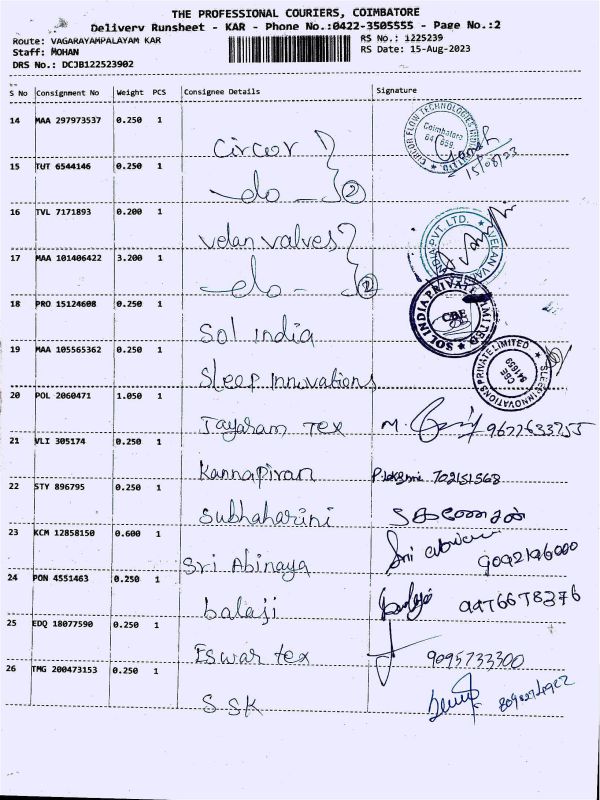 THE PROFESSIONAL COURIERS, COIMBATORE
Delivery Runsheet - KAR - Phone No.:0422-3505555 - Page No.:2
Route: VAGARAYAMPALAYAM KAR
RS No.: 1225239
Staff: MOHAN
RS Date: 15-Aug-2023
DRS No.: DCJB122523902
S No Consignment No Weight PCS Consignee Details Signature
14 MAA 297973537 0.250 1
Circor
CIRCOR FLOW TECHNOLOGIES INDIA
Coimbatore
641 659
15/08/23
15 TUT 6544146 0.250 1
-do- 2
16 TVL 7171893 0.200 1
Velan Valves
VELAN VA
INDIA PVT. LTD.
17 MAA 101406422 3.200 1
-do- 2
18 PRO 15124608 0.250 1
Sol india
SOL INDIA PRIVATE LIMITED
CBE
19 MAA 105565362 0.250 1
Sleep Innovations
SLEEP INNOVATIONS PRIVATE LIMITED
CBE
641659
20 POL 2060471 1.050 1
Jayaram Tex M. 9677633755
21 VLI 305174 0.250 1
Kannapiran 702151568
22 STY 896795 0.250 1
Subhaharini
23 KCM 12858150 0.600 1
Sri Abinaya Sri
24 PON 4551463 0.250 1
balaji
25 EDQ 18077590 0.250 1
Eswar tex 9095733300
26 TMG 200473153 0.250 1
SSK